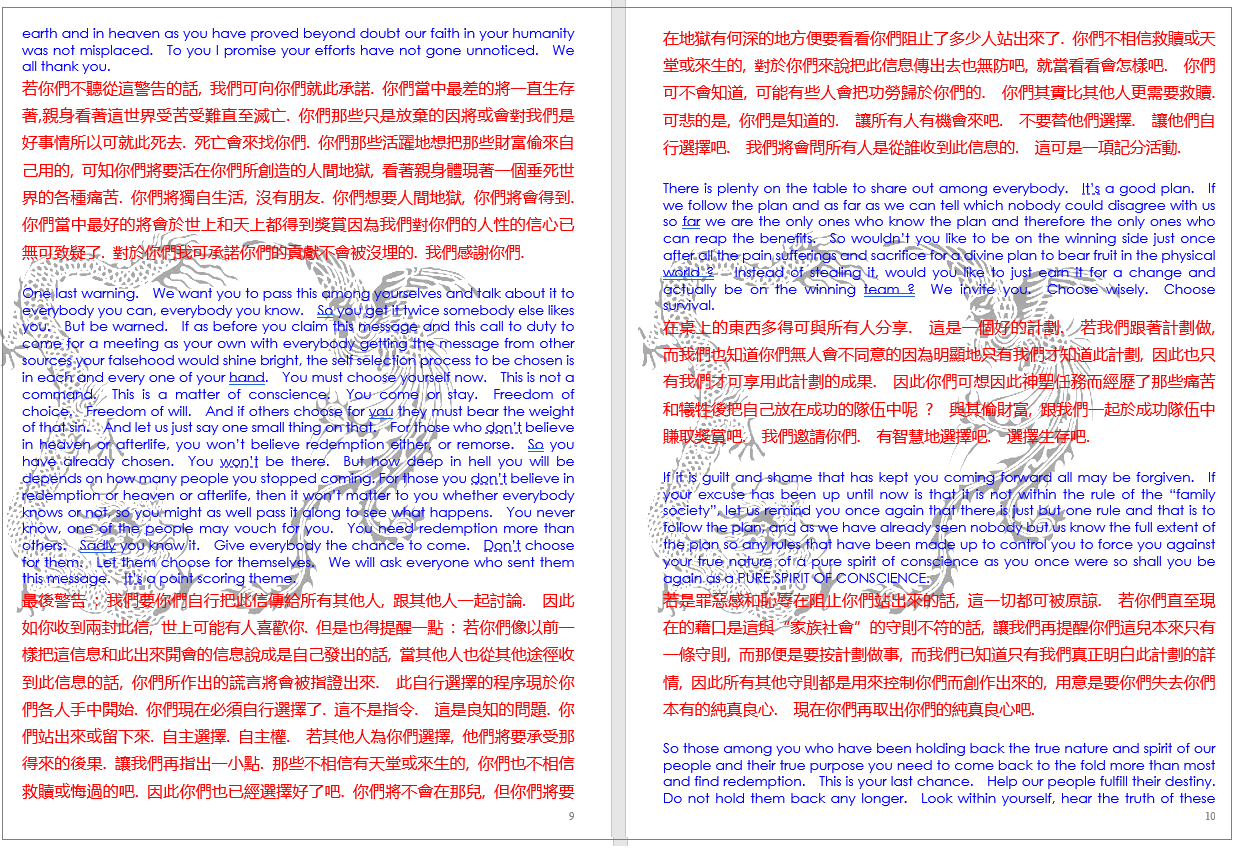 earth and in heaven as you have proved beyond doubt our faith in your humanity
was not misplaced. To you I promise your efforts have not gone unnoticed. We
all thank you.
若你們不聽從這警告的話, 我們可向你們就此承諾. 你們當中最差的將一直生存
著,親身看著這世界受苦受難直至滅亡. 你們那些只是放棄的因將或會對我們是
好事情所以可就此死去. 死亡會來找你們. 你們那些活躍地想把那些財富偷來自
己用的, 可知你們將要活在你們所創造的人間地獄, 看著親身體現著一個垂死世
界的各種痛苦. 你們將獨自生活, 沒有朋友. 你們想要人間地獄, 你們將會得到.
你們當中最好的將會於世上和天上都得到獎賞因為我們對你們的人性的信心已
無可致疑了. 對於你們我可承諾你們的貢獻不會被沒埋的. 我們感謝你們.
One last warning. We want you to pass this among yourselves and talk about it to
everybody you can, everybody you know. So you get it twice somebody else likes
you. But be warned. If as before you claim this message and this call to duty to
come for a meeting as your own with everybody getting the message from other
sources your falsehood would shine bright, the self selection process to be chosen is
in each and every one of your hand. You must choose yourself now. This is not a
command. This is a matter of conscience. You come or stay. Freedom of
choice. Freedom of will. And if others choose for you they must bear the weight
of that sin. And let us just say one small thing on that. For those who don't believe
in heaven or afterlife, you won't believe redemption either, or remorse. So you
have already chosen. You won't be there. But how deep in hell you will be
depends on how many people you stopped coming. For those you don't believe in
redemption or heaven or afterlife, then it won't matter to you whether everybody
knows or not, so you might as well pass it along to see what happens. You never
know, one of the people may vouch for you. You need redemption more than
others. Sadly you know it. Give everybody the chance to come. Don't choose
for them. Let them choose for themselves. We will ask everyone who sent them
this message. It's a point scoring theme.
最後警告 : 我們要你們自行把此信傳給所有其他人, 跟其他人一起討論. 因此
如你收到兩封此信, 世上可能有人喜歡你. 但是也得提醒一點 : 若你們像以前一
樣把這信息和此出來開會的信息說成是自己發出的話, 當其他人也從其他途徑收
到此信息的話, 你們所作出的謊言將會被指證出來. 此自行選擇的程序現於你
們各人手中開始. 你們現在必須自行選擇了. 這不是指令. 這是良知的問題. 你
們站出來或留下來. 自主選擇. 自主權. 若其他人為你們選擇, 他們將要承受那
得來的後果. 讓我們再指出一小點. 那些不相信有天堂或來生的, 你們也不相信
救贖或悔過的吧. 因此你們也已經選擇好了吧. 你們將不會在那兒, 但你們將要
9
在地獄有何深的地方便要看看你們阻止了多少人站出來了. 你們不相信救贖或天
堂或來生的, 對於你們來說把此信息傳出去也無防吧, 就當看看會怎樣吧. 你們
可不會知道, 可能有些人會把功勞歸於你們的. 你們其實比其他人更需要救贖.
可悲的是, 你們是知道的. 讓所有人有機會來吧. 不要替他們選擇. 讓他們自
行選擇吧. 我們將會問所有人是從誰收到此信息的. 這可是一項記分活動.
There is plenty on the table to share out among everybody. It's a good plan. If
we follow the plan and as far as we can tell which nobody could disagree with us
so far we are the only ones who know the plan and therefore the only ones who
can reap the benefits. So wouldn't you like to be on the winning side just once
after all the pain sufferings and sacrifice for a divine plan to bear fruit in the physical
world ? Instead of stealing it, would you like to just earn it for a change and
actually be on the winning team ? We invite you. Choose wisely. Choose
survival.
在桌上的東西多得可與所有人分享. 這是一個好的計劃. 若我們跟著計劃做,
而我們也知道你們無人會不同意的因為明顯地只有我們才知道此計劃, 因此也只
有我們才可享用此計劃的成果. 因此你們可想因此神聖任務而經歷了那些痛苦
和犧牲後把自己放在成功的隊伍中呢 ? 與其偷財富, 跟我們一起於成功隊伍中
賺取獎賞吧. 我們邀請你們. 有智慧地選擇吧. 選擇生存吧.
If it is guilt and shame that has kept you coming forward all may be forgiven. If
your excuse has been up until now is that it is not within the rule of the "family
society", let us remind you once again that there is just but one rule and that is to
follow the plan, and as we have already seen nobody but us know the full extent of
the plan so any rules that have been made up to control you to force you against
your true nature of a pure spirit of conscience as you once were so shall you be
again as a PURE SPIRIT OF CONSCIENCE.
若是罪惡感和恥辱在阻止你們站出來的話, 這一切都可被原諒. 若你們直至現
在的藉口是這與 "家族社會" 的守則不符的話, 讓我們再提醒你們這兒本來只有
一條守則, 而那便是要按計劃做事, 而我們已知道只有我們真正明白此計劃的詳
情, 因此所有其他守則都是用來控制你們而創作出來的, 用意是要你們失去你們
本有的純真良心. 現在你們再取出你們的純真良心吧.
So those among you who have been holding back the true nature and spirit of our
people and their true purpose you need to come back to the fold more than most
and find redemption. This is your last chance. Help our people fulfill their destiny.
Do not hold them back any longer. Look within yourself, hear the truth of these
10